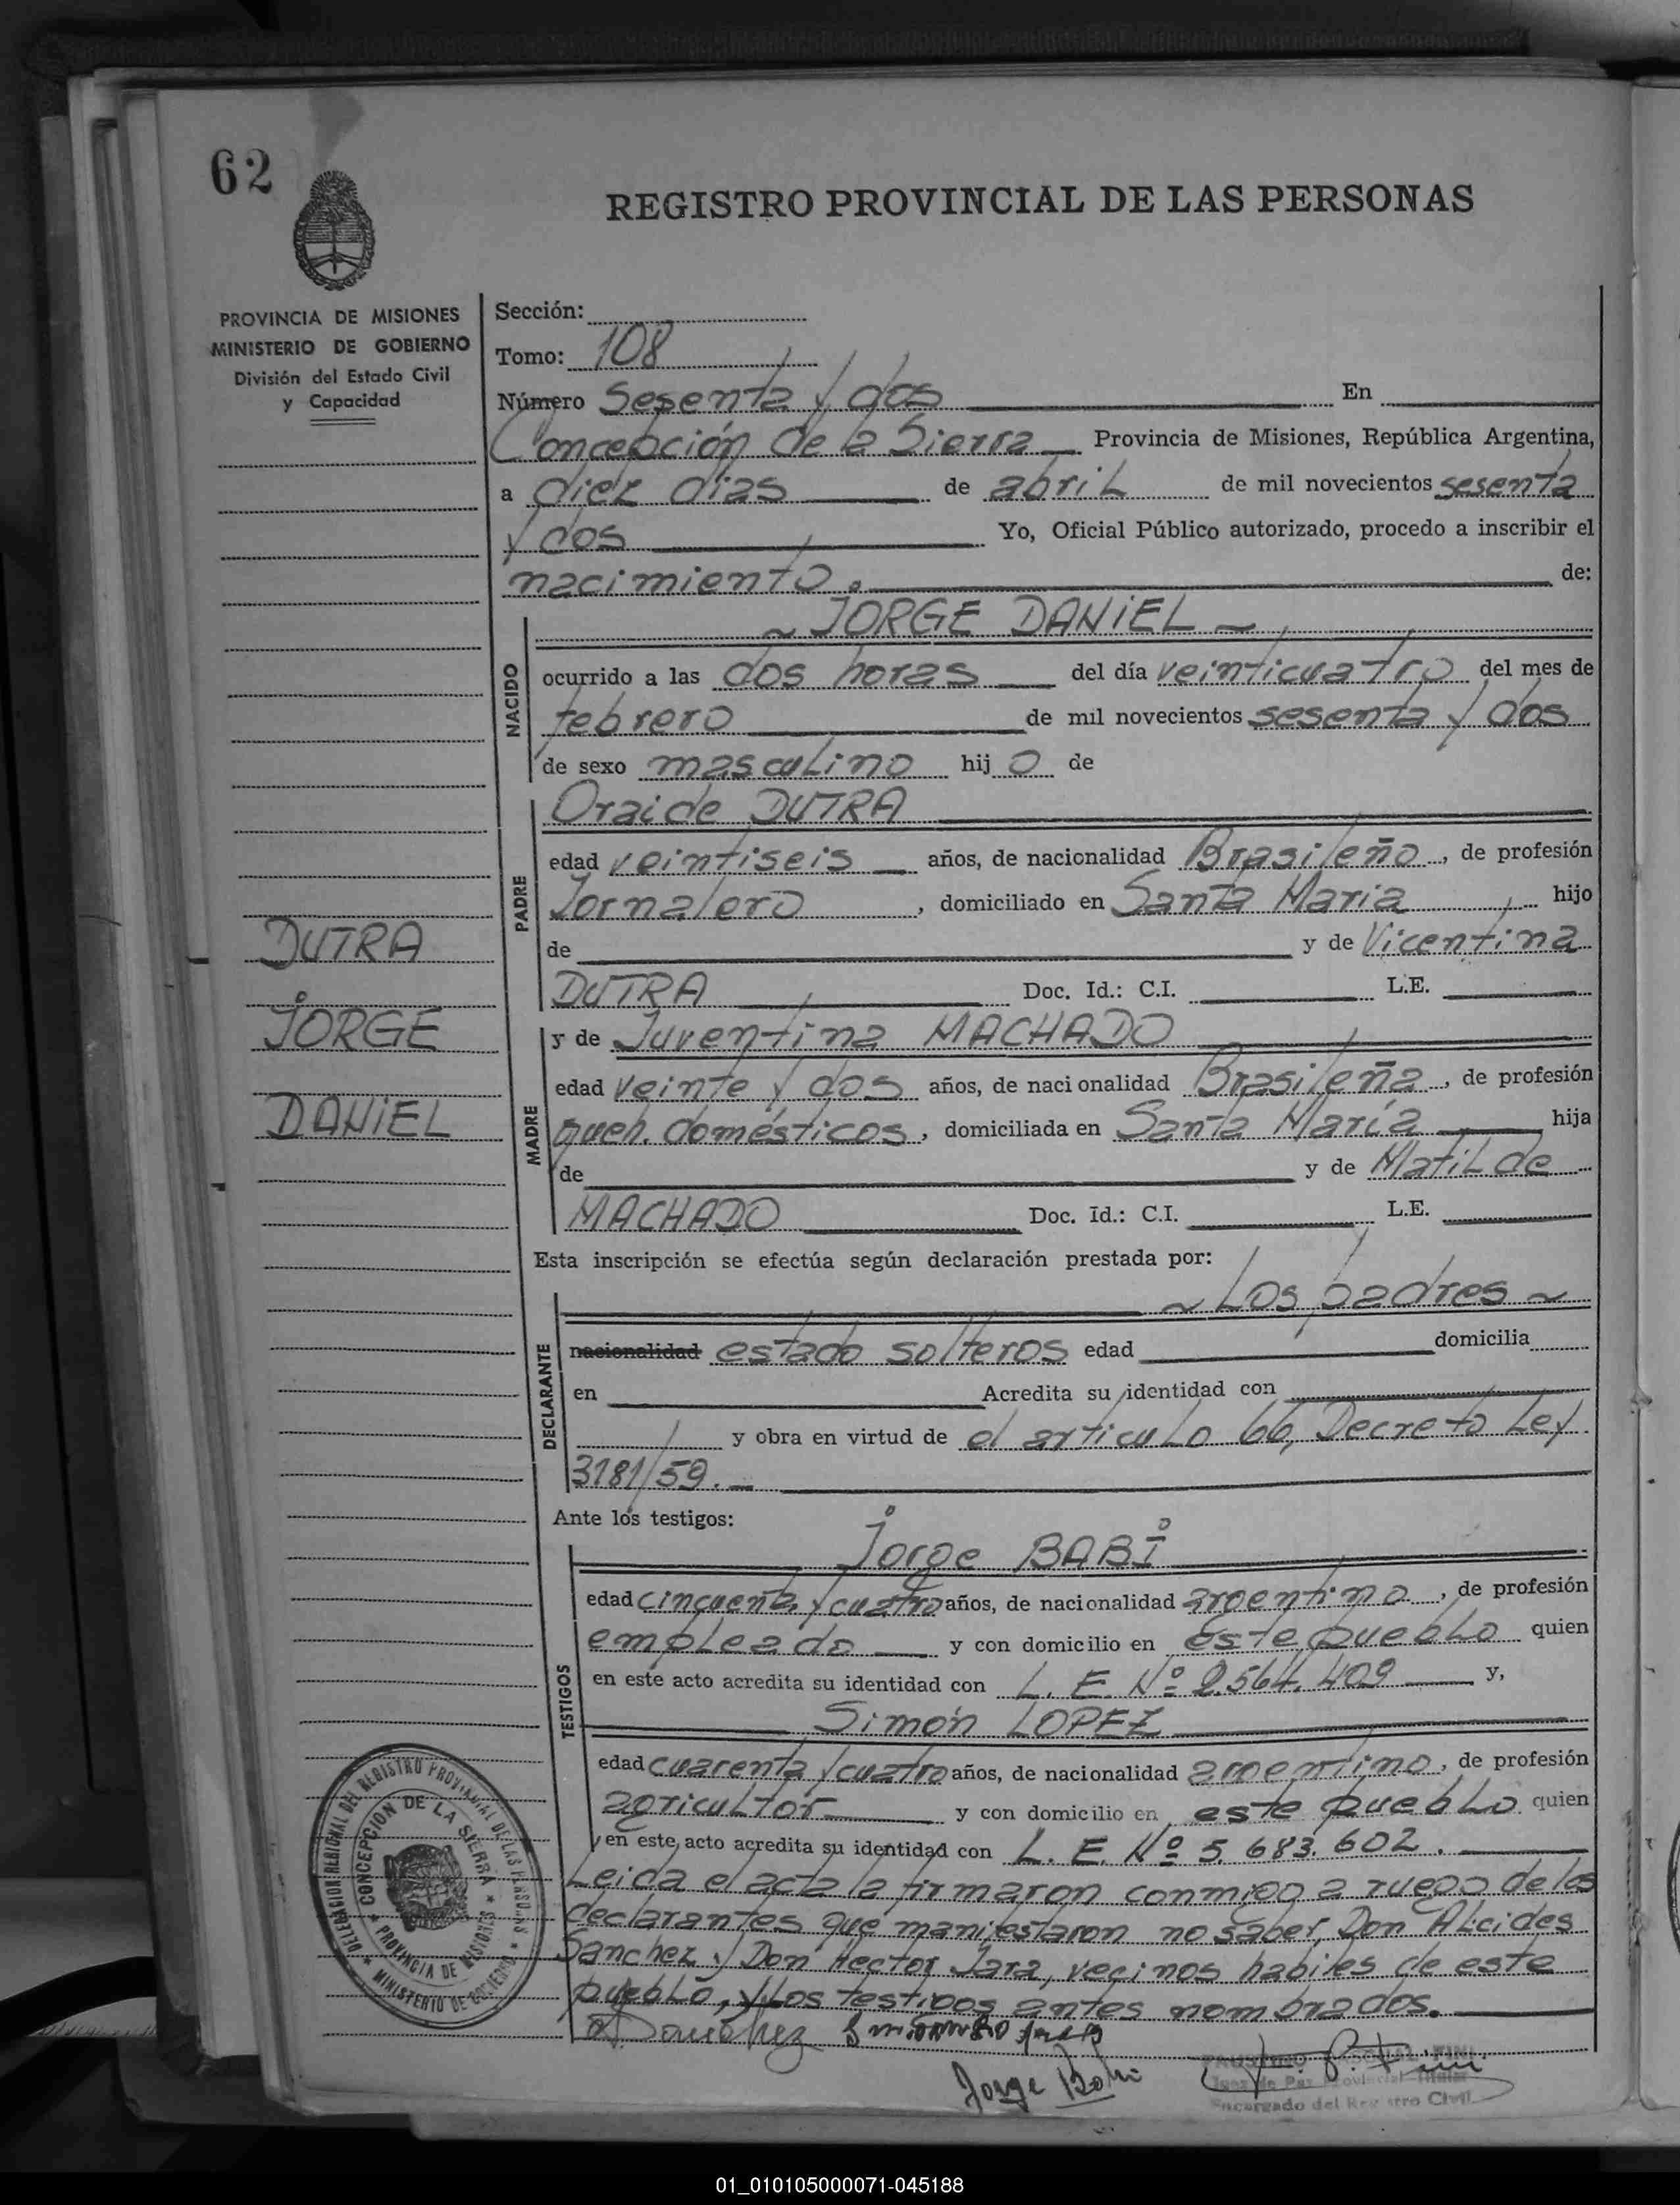 62
REGISTRO PROVINCIAL DE LAS PERSONAS
PROVINCIA DE MISIONES
MINISTERIO DE GOBIERNO
División del Estado Civil
y Capacidad
DUTRA
JORGE
DANIEL
Sección:
Tomo: 108
Número Sesenta y dos En
Concepción de la Sierra Provincia de Misiones, República Argentina,
a diez días de abril de mil novecientos sesenta
y dos Yo, Oficial Público autorizado, procedo a inscribir el
nacimiento. de:
NACIDO
~ JORGE DANIEL ~
ocurrido a las dos horas del día veinticuatro del mes de
febrero de mil novecientos sesenta y dos
de sexo masculino hijo de
PADRE
Oraide DUTRA
edad veintiseis años, de nacionalidad Brasileño, de profesión
Jornalero, domiciliado en Santa Maria hijo
de y de Vicentina
DUTRA Doc. Id.: C.I. L.E.
MADRE
y de Juventina MACHADO
edad veinte y dos años, de nacionalidad Brasileña, de profesión
queh. domésticos, domiciliada en Santa María hija
de y de Matilde
MACHADO Doc. Id.: C.I. L.E.
Esta inscripción se efectúa según declaración prestada por:
~ Los padres ~
DECLARANTE
nacionalidad estado solteros edad domicilia
en Acredita su identidad con
y obra en virtud de el artículo 66, Decreto Ley
3181/59.
Ante los testigos:
TESTIGOS
Jorge BABI
edad cincuenta y cuatro años, de nacionalidad argentino, de profesión
empleado y con domicilio en este pueblo quien
en este acto acredita su identidad con L. E. Nº 2.564.409 y,
Simón LOPEZ
edad cuarenta y cuatro años, de nacionalidad argentino, de profesión
agricultor y con domicilio en este pueblo quien
en este acto acredita su identidad con L. E. Nº 5.683.602.
Leida el acta la firmaron conmigo a ruego de los
declarantes que manifestaron no saber, Don Alcides
Sanchez y Don Hector Jara, vecinos habiles de este
pueblo, y los testigos antes nombrados.
Sanchez
Jorge Babi
Juez de Paz Provincial Titular
Encargado del Registro Civil
DELEGACION REGIONAL DEL REGISTRO PROVINCIAL DE LAS PERSONAS
MINISTERIO DE GOBIERNO
CONCEPCION DE LA SIERRA
PROVINCIA DE MISIONES
01_010105000071-045188